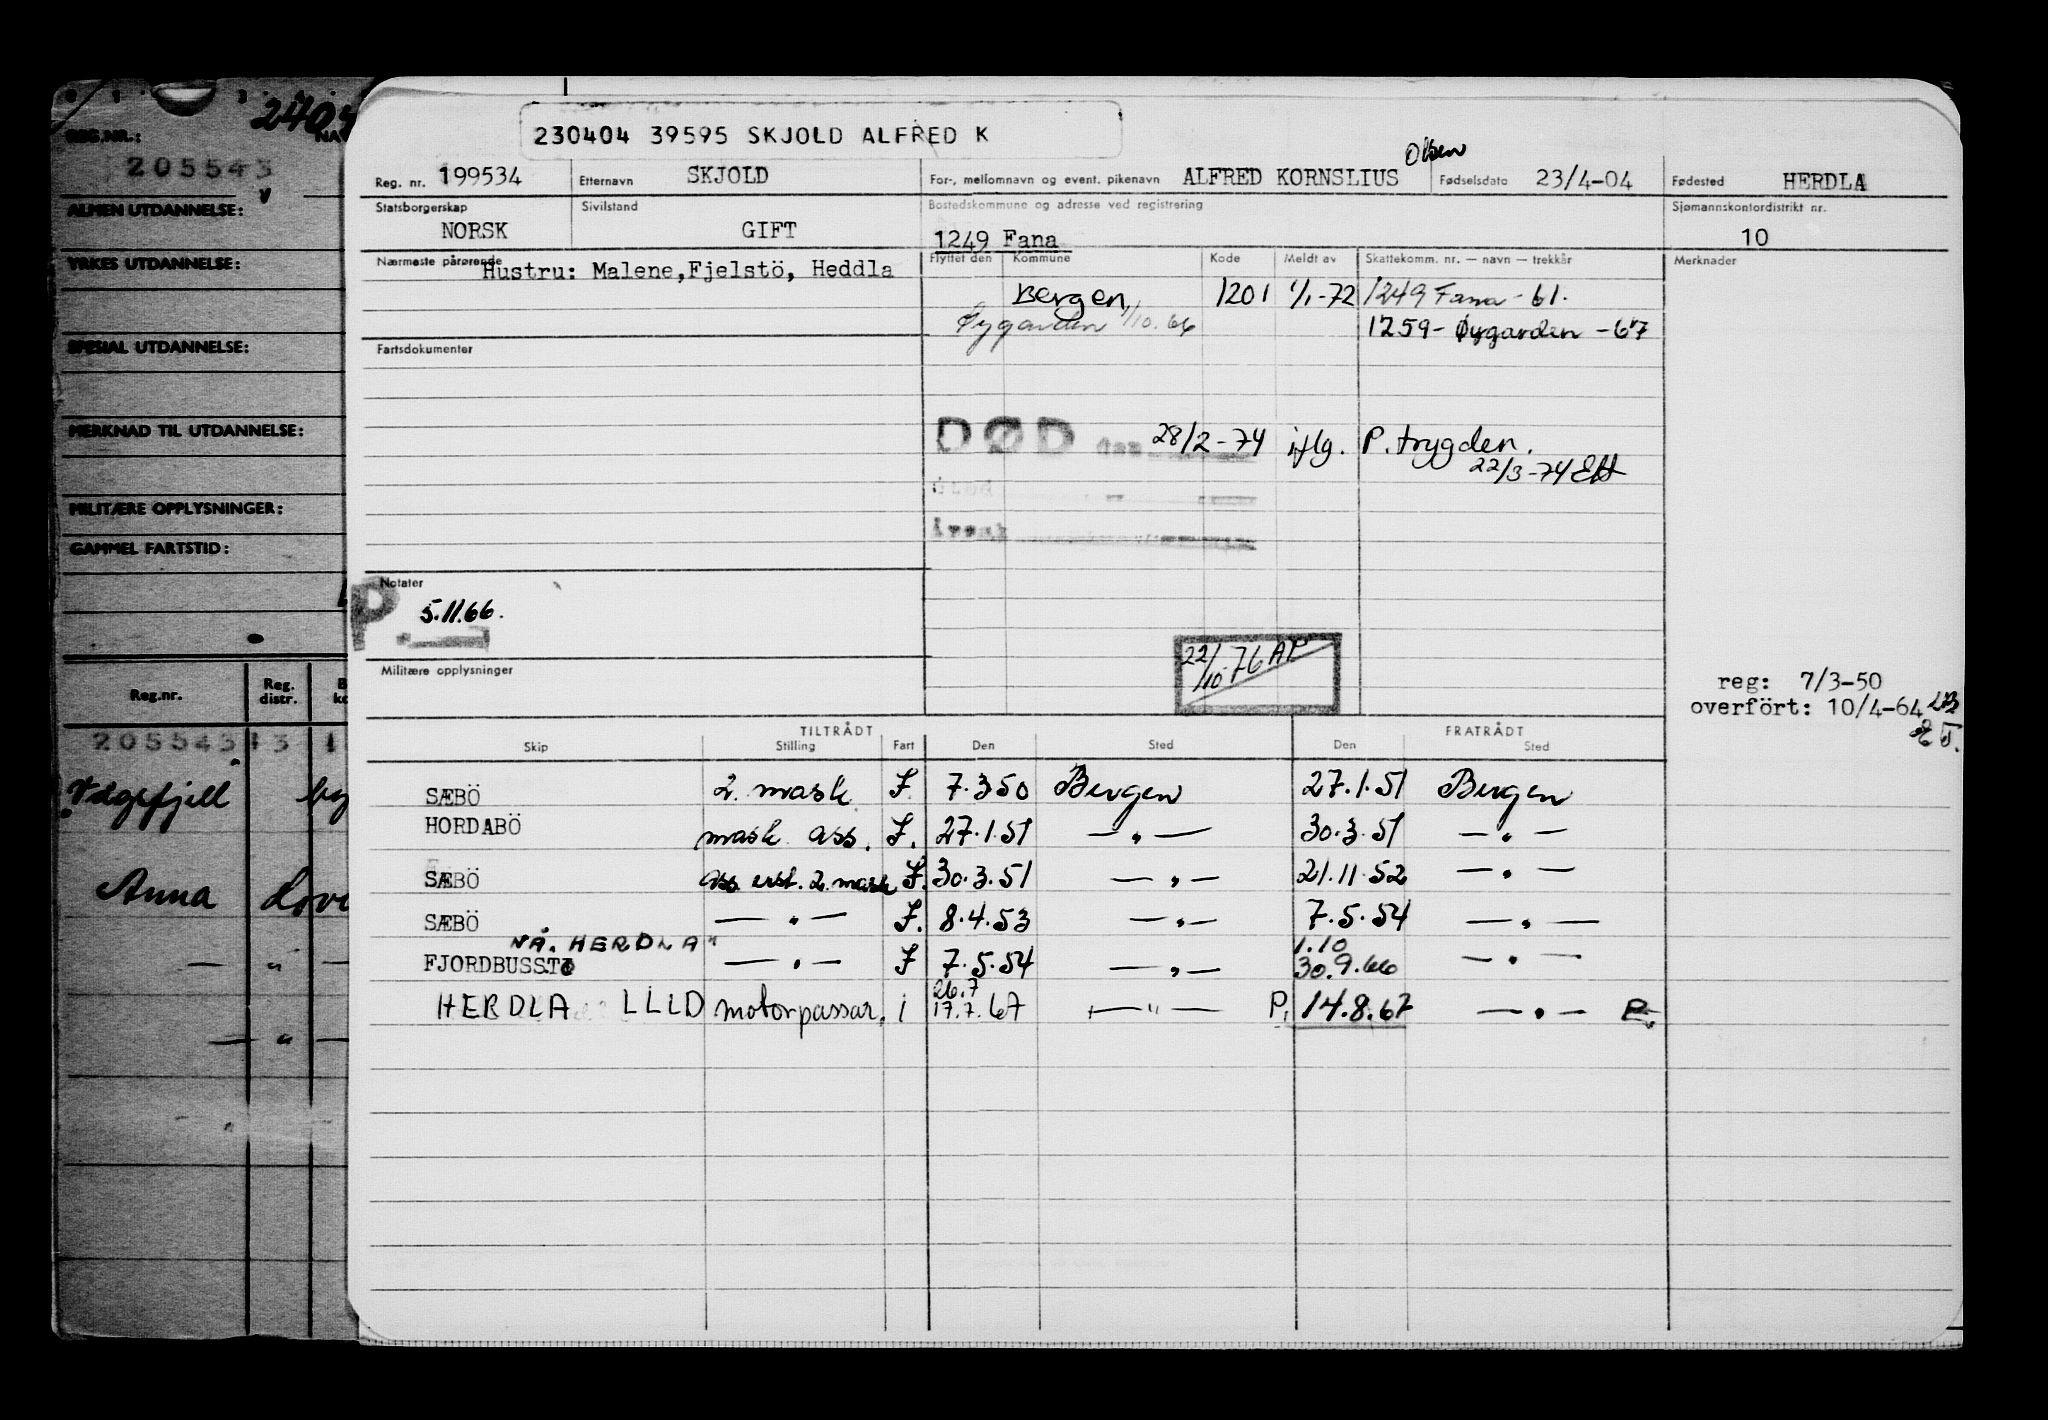 230404 39595 SKJOLD ALFRED K
Olsen
Reg. nr. 199534 Etternavn SKJOLD For-, mellomnavn og event. pikenavn ALFRED KORNSLIUS Fødselsdato 23/4-04 Fødested HERDLA
Statsborgerskap Sivilstand Bostedskommune og adresse ved registrering Sjømannskontordistrikt nr.
NORSK GIFT 1249 Fana 10
Nærmeste pårørende Hustru: Malene,Fjelstö, Heddla Flyttet den Kommune Kode Meldt av Skattekomm. nr. — navn — trekkår Merknader
Bergen, 1201 1/1-72 1249 Fana - 61.
Øygarden 1/10.66 1259- Øygarden -67
Fartsdokumenter
DØD den 28/2-74 iflg. P.trygden.
22/3-74
Notater
P. 5.11.66.
22/10 76 AP
Militære opplysninger
reg: 7/3-50
overfört: 10/4-64
TILTRÅDT FRATRÅDT
Skip Stilling Fart Den Sted Den Sted
SÆBÖ 2. mask J. 7.3.50 Bergen 27.1.51 Bergen
HORDABÖ mask. ass. J. 27.1.51 — " — 30.3.51 — " —
SÆBÖ ass. erst. 2. mask J. 30.3.51 — " — 21.11.52 — " —
SÆBÖ — " — J. 8.4.53 — " — 7.5.54 — " —
NÅ. HERDLA" 1.10
FJORDBUSST — " — J 7.5.54 — " — 30.9.66 — " —
26.7
HERDLA LLLD motorpassar. i 17.7.67 — " — P. 14.8.67 — " — P.
REG.NR.: NA
205543
ALMEN UTDANNELSE:
YRKES UTDANNELSE:
SPESIAL UTDANNELSE:
MERKNAD TIL UTDANNELSE:
MILITÆRE OPPLYSNINGER:
GAMMEL FARTSTID:
Reg.nr. Reg. distr.
205543 13 1
Anna
— " —
— " —